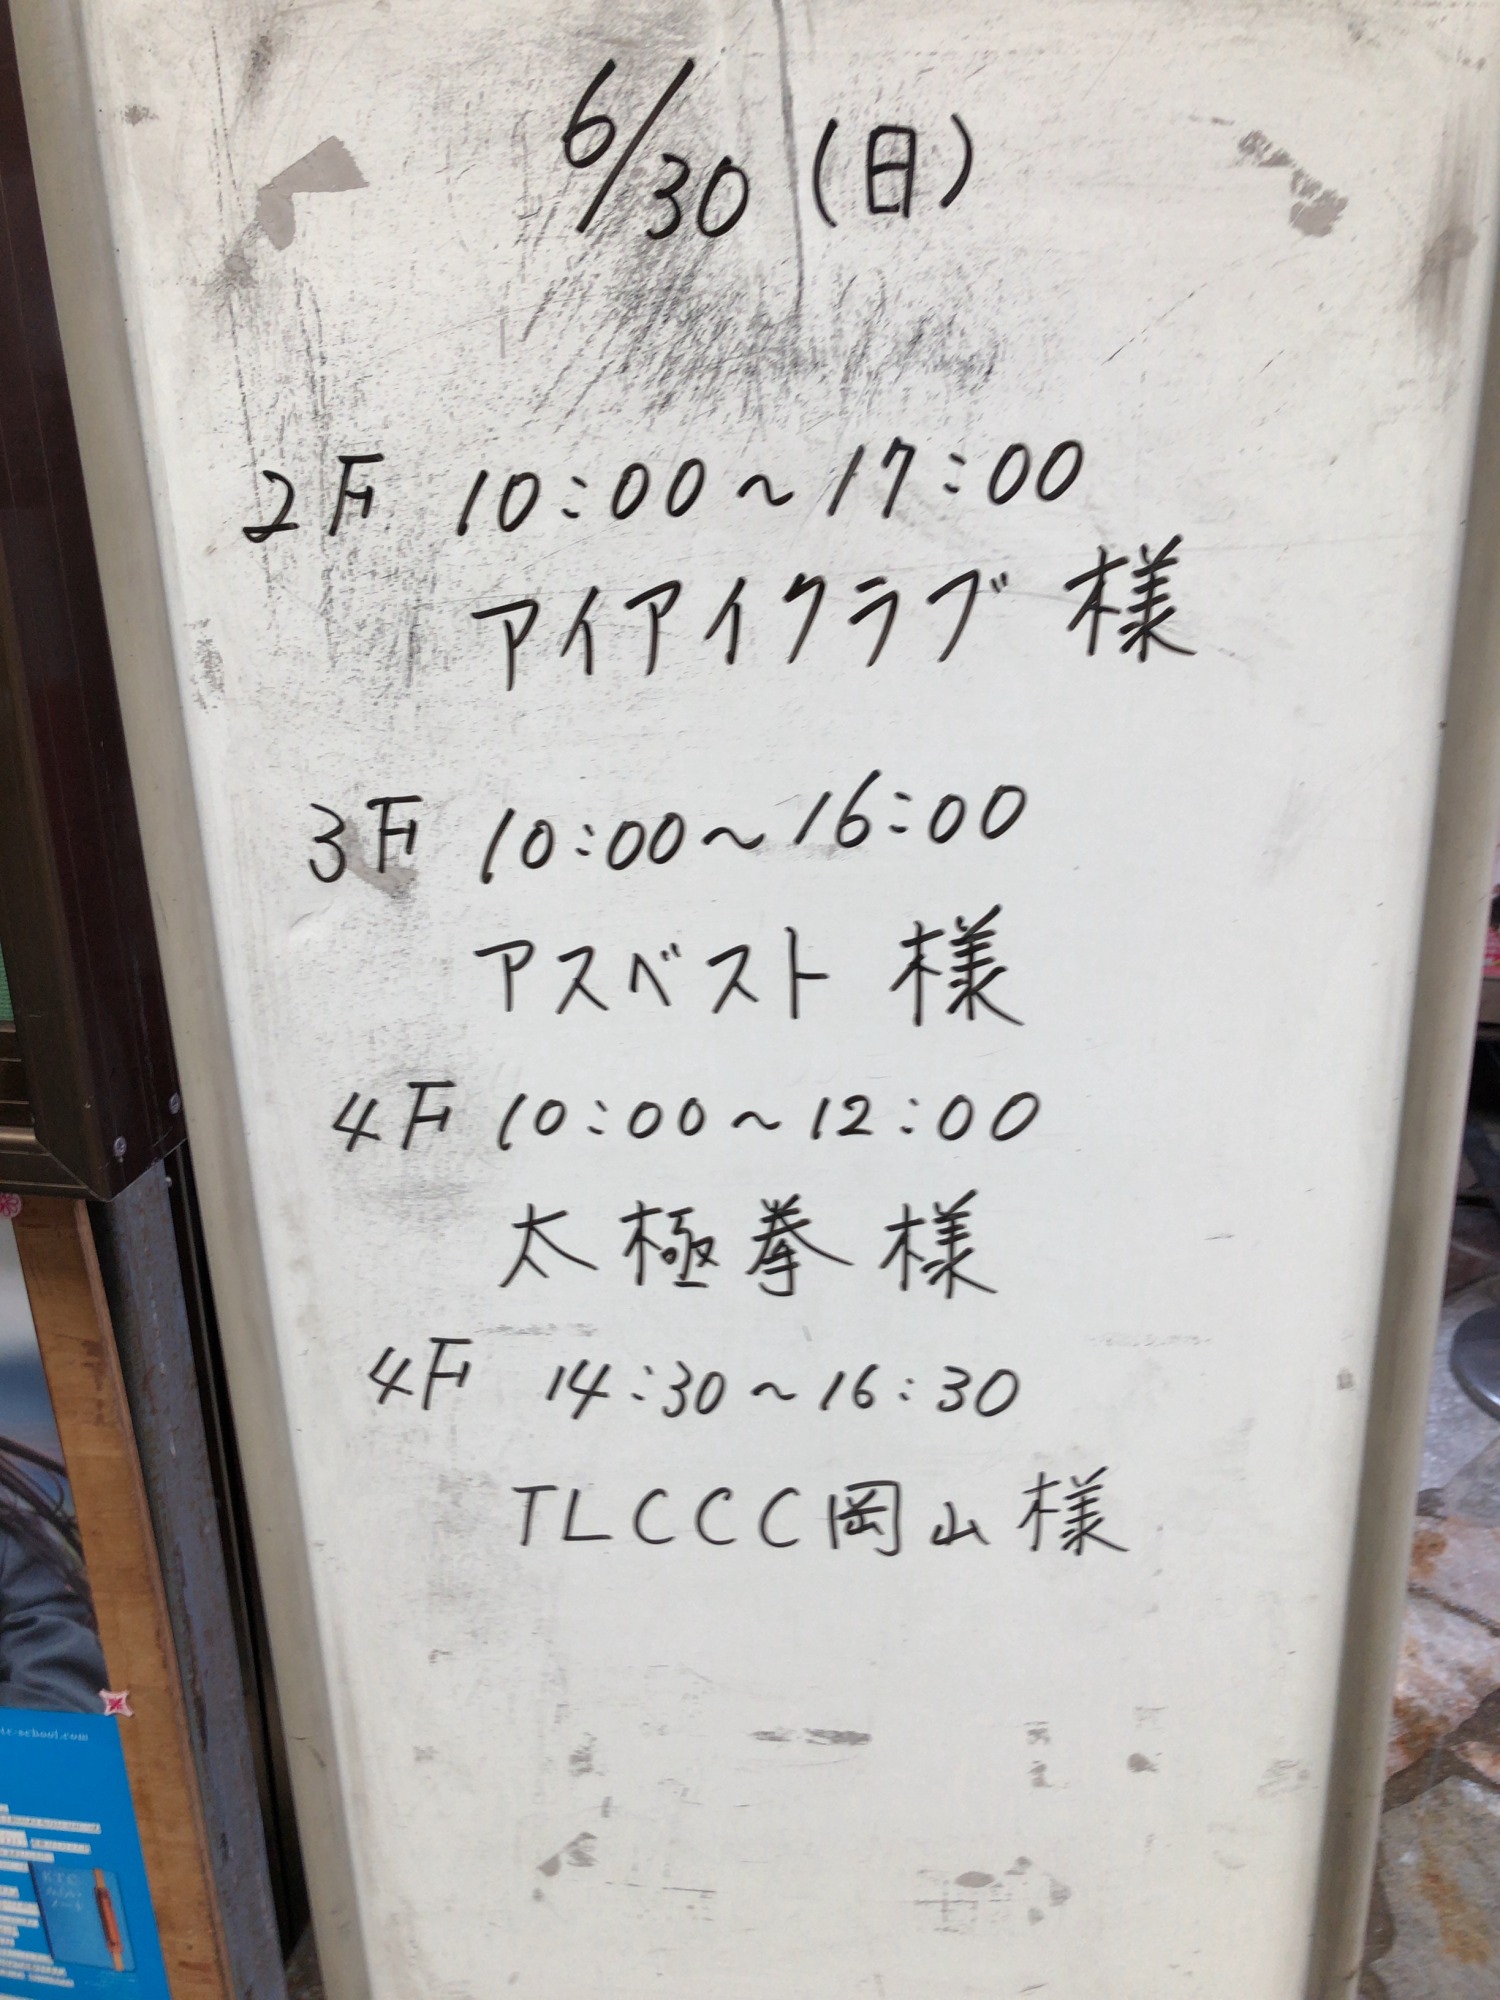 6/30(日)
2F 10:00〜17:00
アイアイクラブ 様
3F 10:00〜16:00
アスベスト 様
4F 10:00〜12:00
太極拳 様
4F 14:30〜16:30
TLCCC岡山様